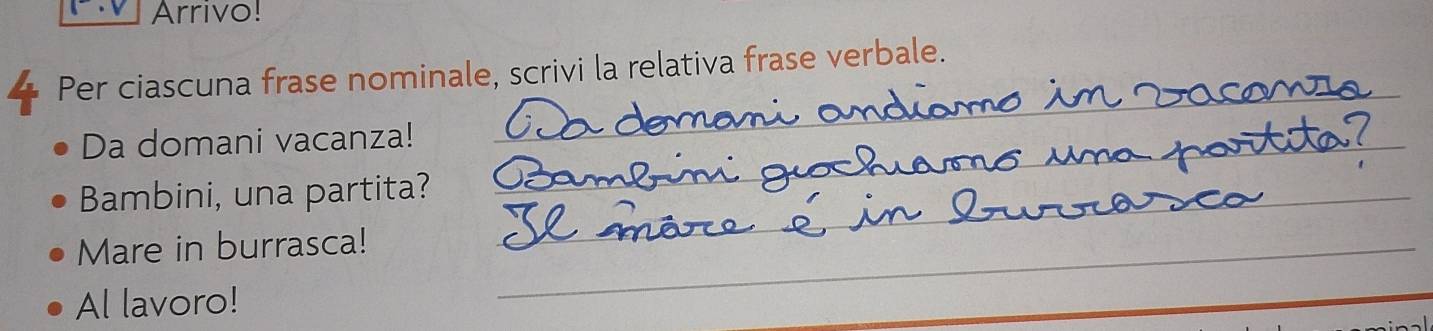 P.V Arrivo!
4 Per ciascuna frase nominale, scrivi la relativa frase verbale.
• Da domani vacanza! Da domani andiamo in vacanza
• Bambini, una partita? Bambini giochiamo una partita?
• Mare in burrasca! Il mare é in burrasca
• Al lavoro!